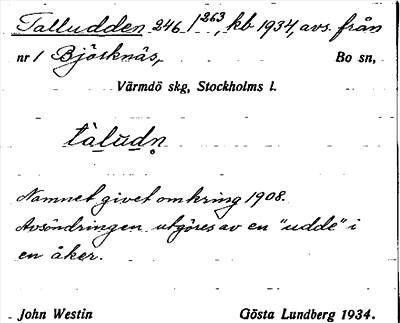 Talludden 246 1/263, kb 1934, avs. från
nr 1 Björknäs, Bo sn,
Värmdö skg, Stockholms l.
tàlùdṇ
Namnet givet omkring 1908.
Avsöndringen utgöres av en "udde" i
en åker.
John Westin Gösta Lundberg 1934.